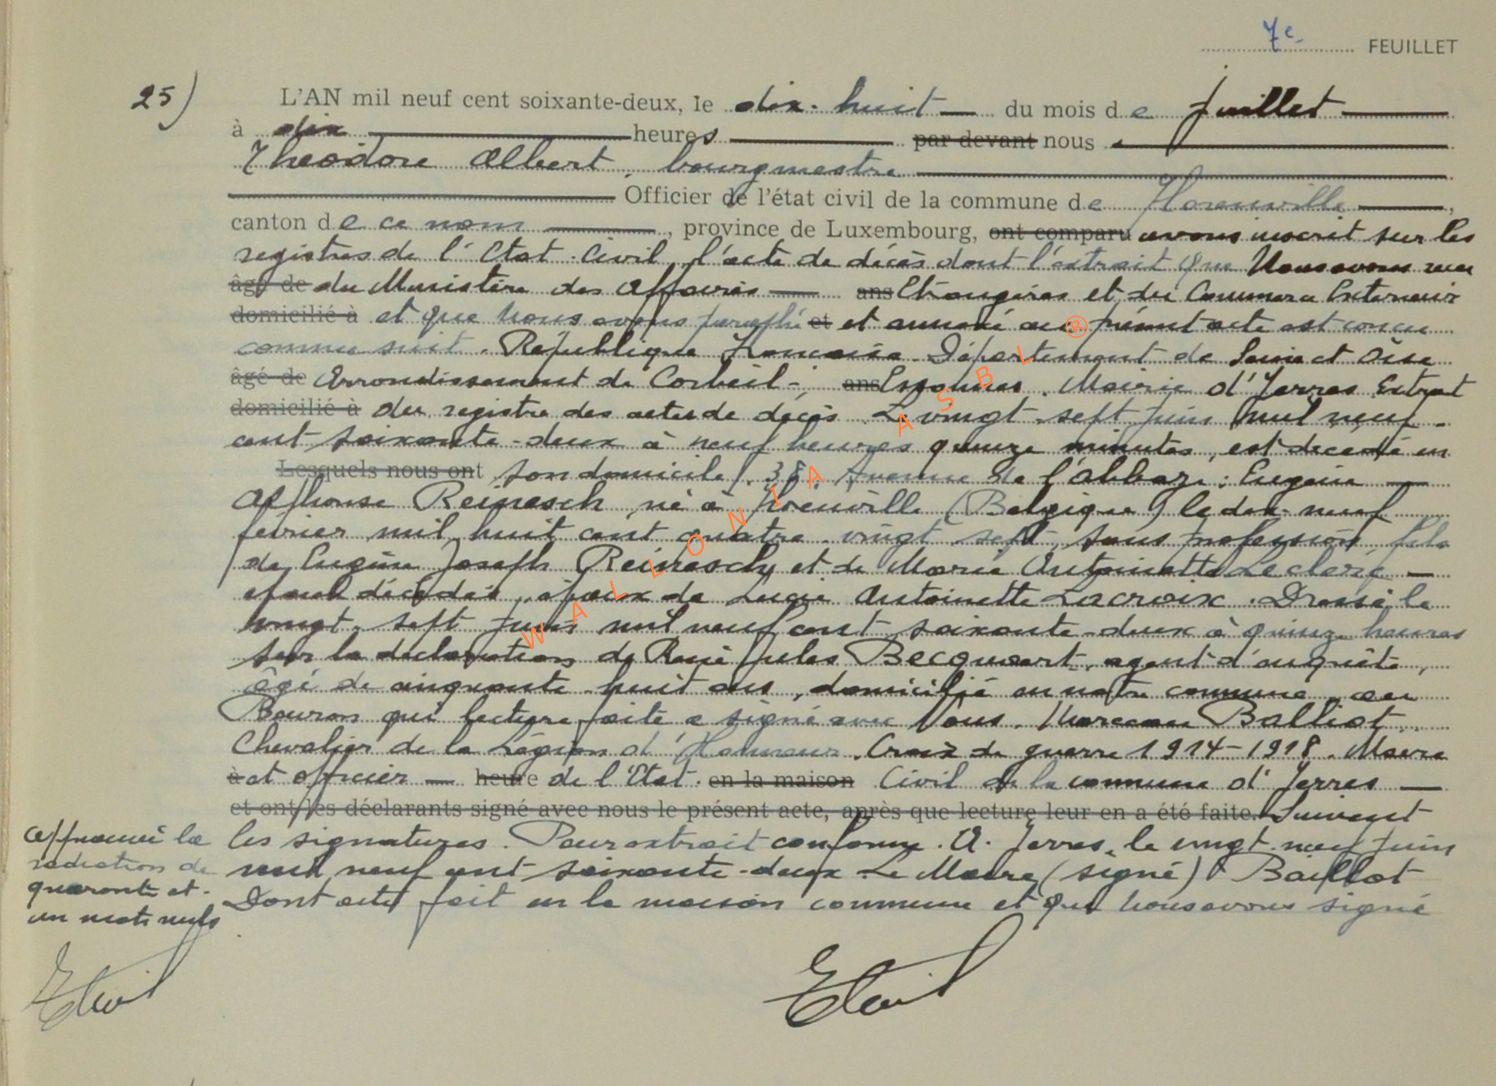 7e FEUILLET
25) L'AN mil neuf cent soixante-deux, le dix-huit du mois de juillet
à dix heures par devant nous
Théodore Albert, bourgmestre
Officier de l'état civil de la commune de Florenville,
canton de ce nom, province de Luxembourg, ont comparu avons inscrit sur les
registres de l'Etat-Civil, l'acte de décès dont l'extrait que Nous avons reçu
âgé de du Ministère des Affaires ans Etrangères et du Commerce Extérieur
domicilié à et que nous avons paraphé et et annexé au présent acte est conçu
comme suit. République Française Département de Seine et Oise
âgé de Arrondissement de Corbeil- ans Essonnes. Mairie d'Yerres Extrait
domicilié à du registre des actes de décès. Le vingt-sept juin mil neuf
cent soixante-deux à neuf heures quinze minutes, est décédé en
Lesquels nous ont son domicile, 38, Avenue de l'Abbaye: Eugène
Alphonse Reinesch né à Florenville (Belgique) le dix-neuf
février mil huit cent quatre-vingt sept, sans profession, fils
de Eugène Joseph Reinesch et de Marie Antoinette Leclerc
époux décédés, époux de Lucie Antoinette Lacroix. Dressé le
vingt-sept juin mil neuf cent soixante-deux à quinze heures
sur la déclaration de René Jules Becquaert, agent d'enquête,
âgé de cinquante-huit ans, domicilié en notre commune, qui lecture faite a signé avec Nous. Marceau Balliot
Chevalier de la Légion d'Honneur. Croix de guerre 1914-1918. Maire
à et officier heure de l'Etat. en la maison Civil de la commune d'Yerres
et ont les déclarants signé avec nous le présent acte, après que lecture leur en a été faite. Suivent
les signatures. Pour extrait conforme. A. Yerres, le vingt-neuf juin
mil neuf cent soixante-deux Le Maire (signé) Balliot
Dont acte fait en la maison commune et que nous avons signé
Approuvé la
radiation de
quarante et
un mots nuls
WALLONIA ASBL ®